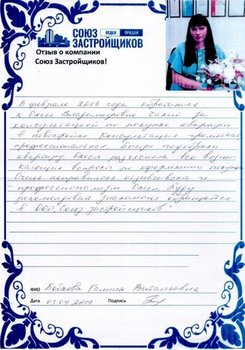 СОЮЗ ОТДЕЛ ПРОДАЖ
ЗАСТРОЙЩИКОВ
Отзыв о компании
Союз Застройщиков!
В феврале 2019 года обратилась
к Ольге Владимировне за
консультацией по покупке квартиры
в новостройке. Консультация
профессиональная. Быстро подобрали
квартиру. Ольга разъяснила все возни-
кающие вопросы по оформлению покупки.
Очень понравилось отзывчивость и
профессионализм Ольги. Буду
рекомендовать знакомым обращаться
в ООО "Союз застройщиков"
ФИО Бобкова Галина Витальевна
Дата 03.04.2019 Подпись